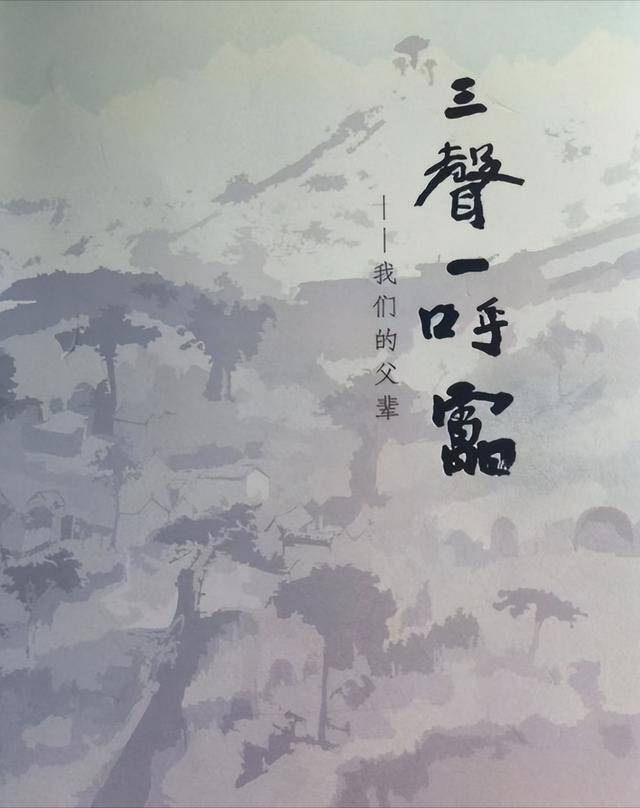 三聲一呼
——我们的父辈